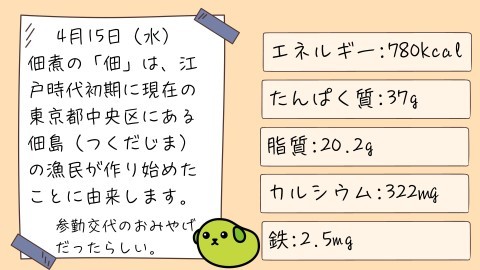 4月15日（水）
佃煮の「佃」は、江
戸時代初期に現在の
東京都中央区にある
佃島（つくだじま）
の漁民が作り始めた
ことに由来します。
参勤交代のおみやげ
だったらしい。
エネルギー:780kcal
たんぱく質:37g
脂質:20.2g
カルシウム:322mg
鉄:2.5mg